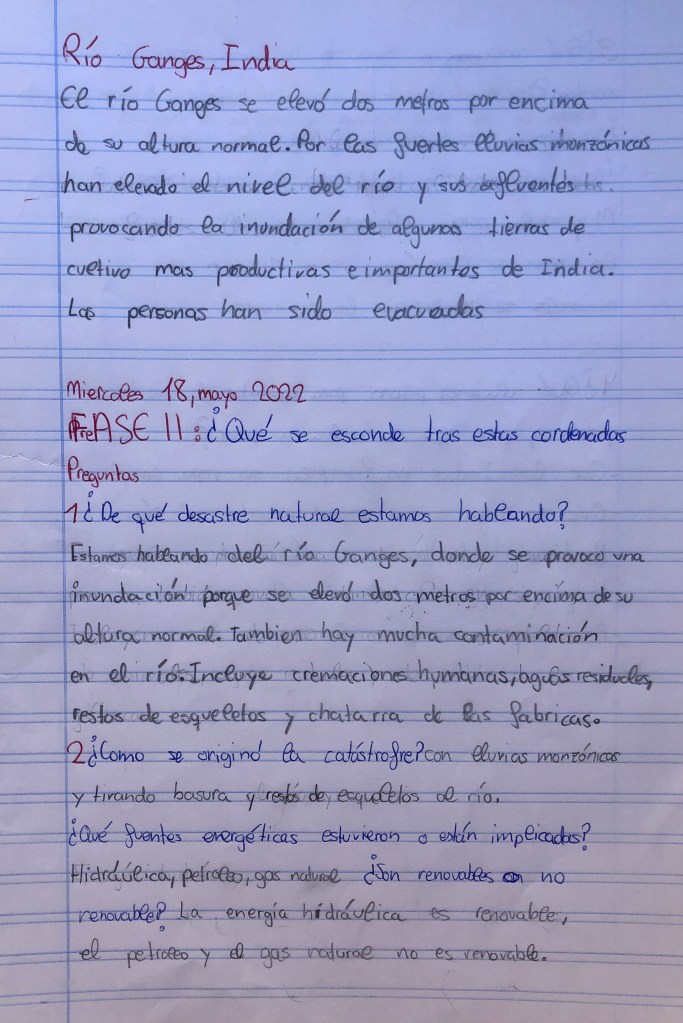 Río Ganges, India
El río Ganges se elevó dos metros por encima
de su altura normal. Por las fuertes lluvias monzónicas
han elevado el nivel del río y sus afluentes
provocando la inundación de algunas tierras de
cultivo mas productivas e importantes de India.
Las personas han sido evacuadas
Miercoles 18, mayo 2022
FASE II: ¿Qué se esconde tras estas cordenadas
Preguntas
1 ¿De qué desastre natural estamos hablando?
Estamos hablando del río Ganges, donde se provoco una
inundación porque se elevó dos metros por encima de su
altura normal. Tambien hay mucha contaminación
en el río. Incluye cremaciones humanas, aguas residuales,
restos de esqueletos y chatarra de las fabricas.
2 ¿Como se originó la catástrofre? con lluvias monzónicas
y tirando basura y restos de esqueletos al río.
¿Qué fuentes energéticas estuvieron o están implicadas?
Hidráulica, petroleo, gas natural ¿Son renovables o no
renovable? La energía hidráulica es renovable,
el petroleo y el gas natural no es renovable.